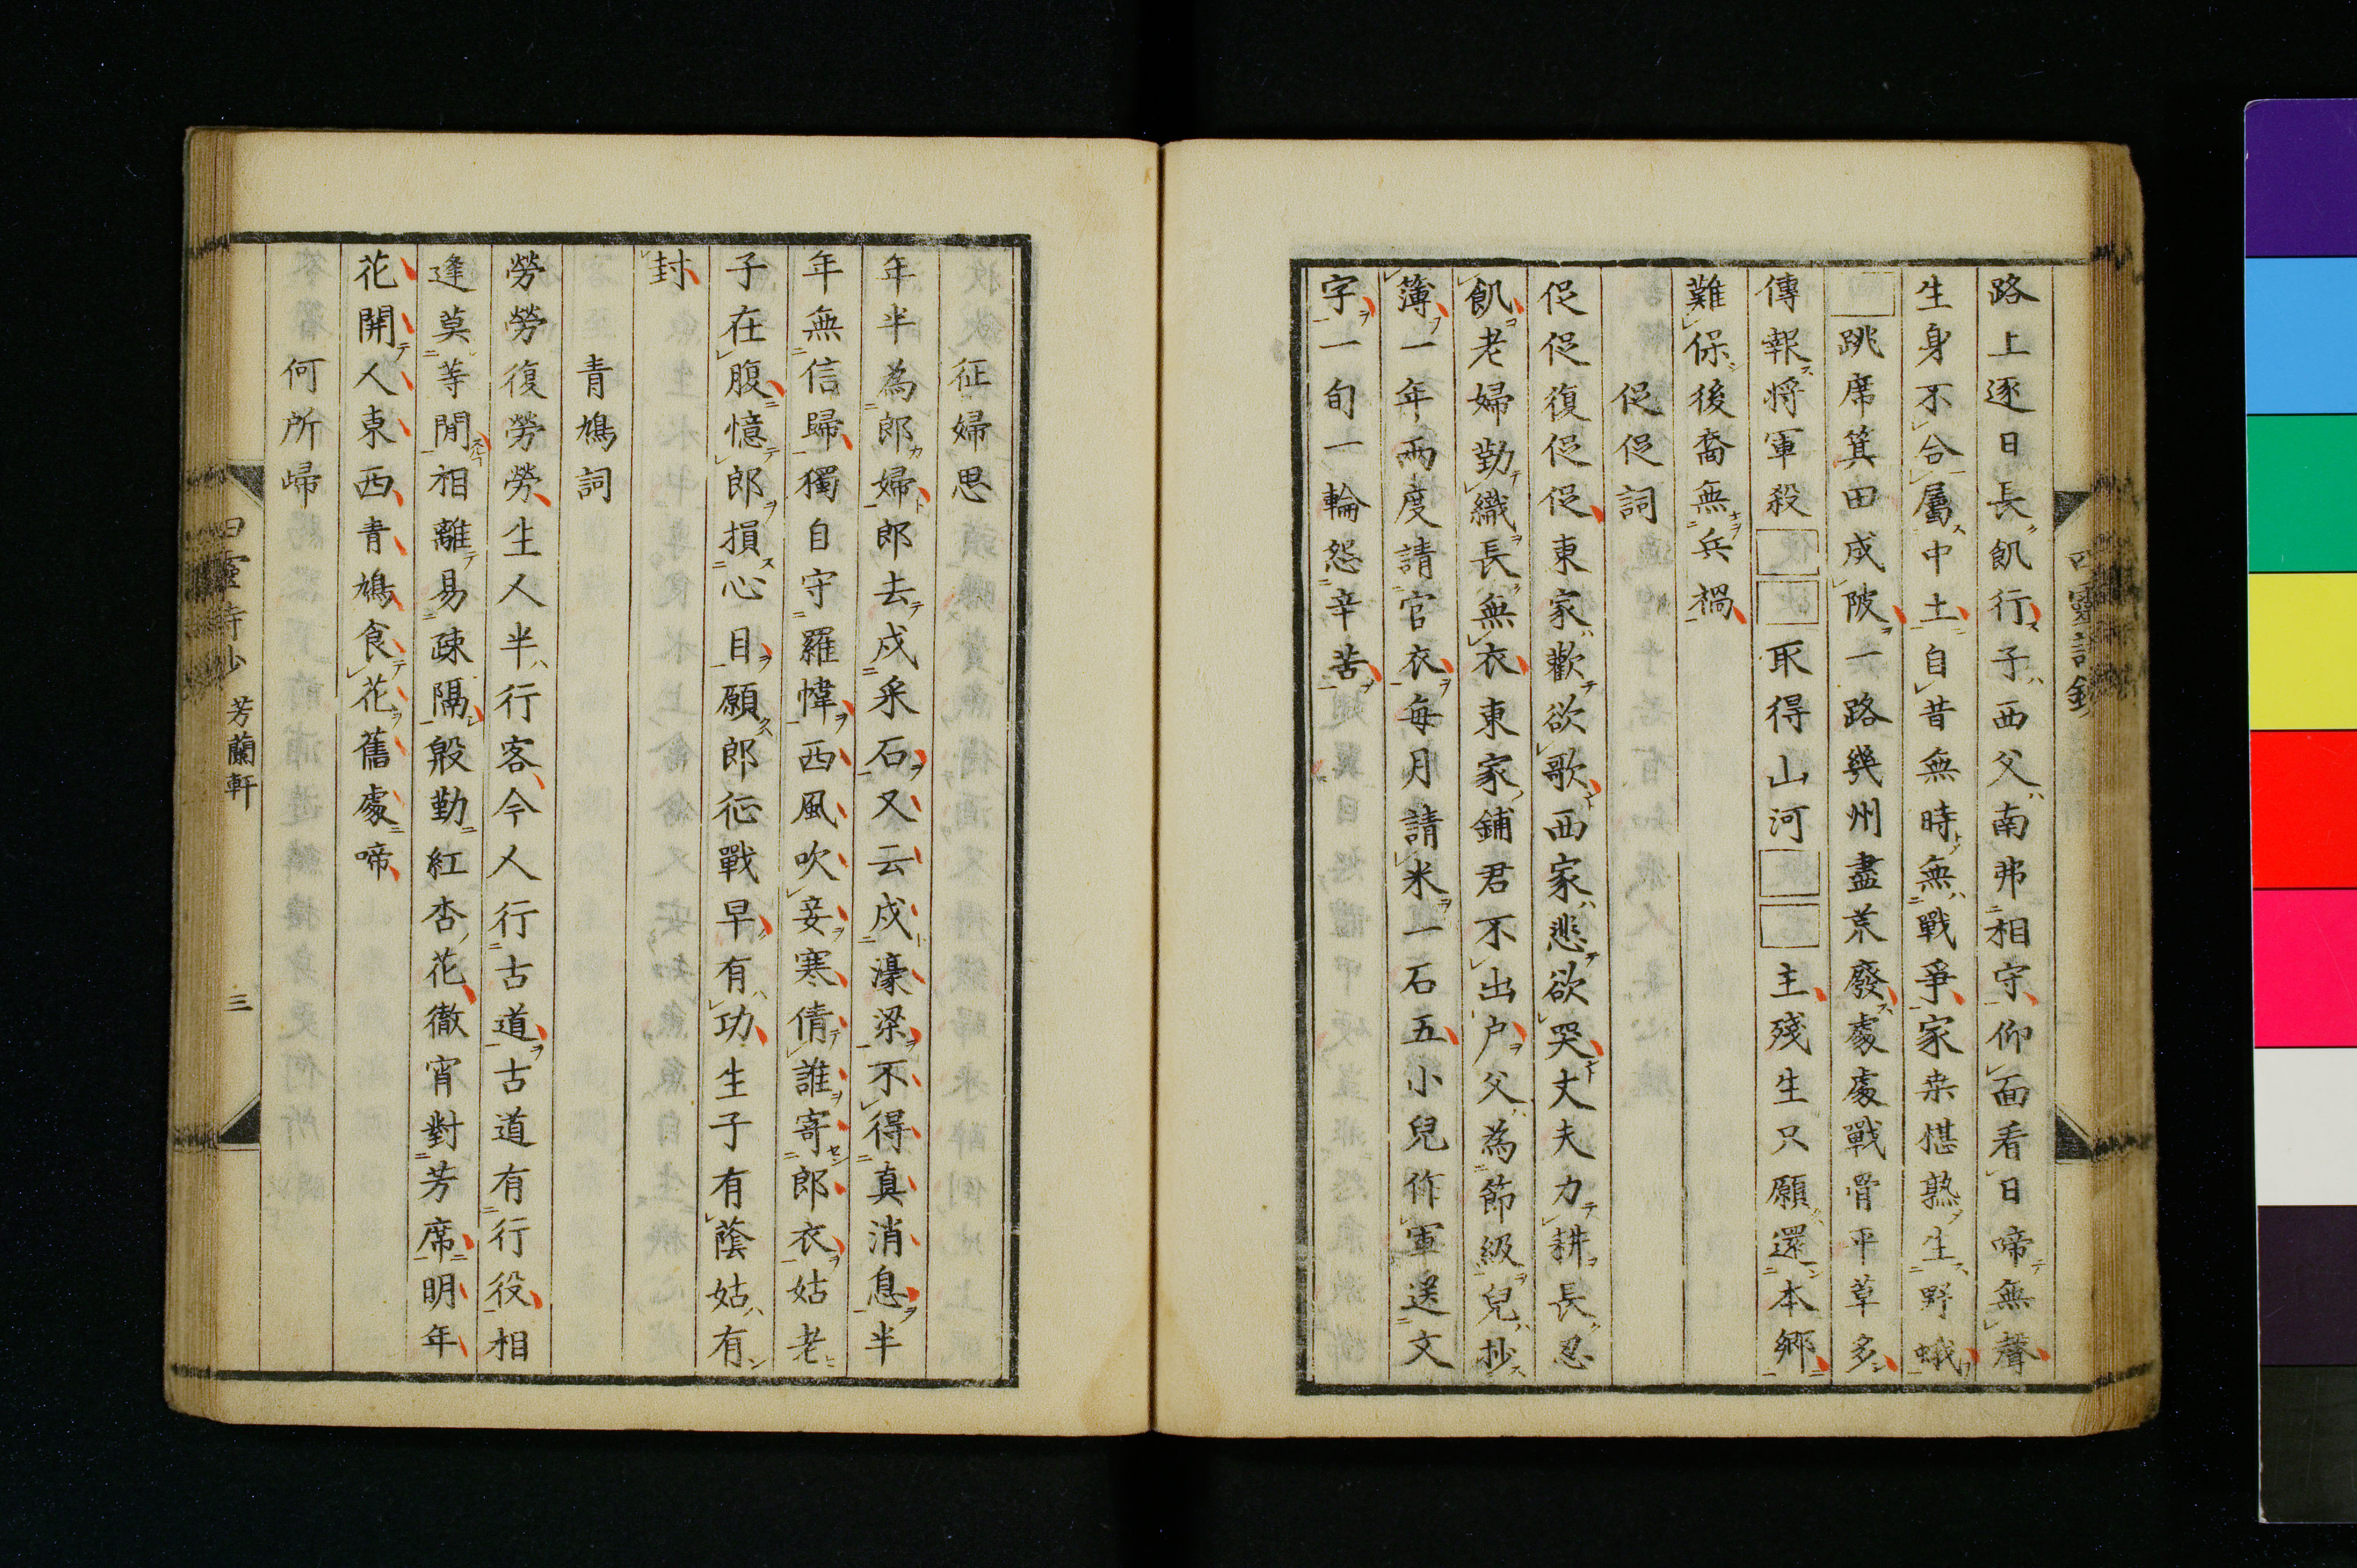 路上逐日長飢行子西父南弗相守仰面看日啼無聲
生身不合屬中土自昔無時無戰爭家桒惵熟生野蛾
□跳席箕田成陂一路幾州盡荒廢處處戰骨平草多
傳報将軍殺□□取得山河□□主殘生只願還本鄉
難保後裔無兵禍
促促詞
促促復促促東家歡欲歌西家悲欲哭丈夫力耕長忍
飢老婦勤織長無衣東家鋪君不出户父為節級兒抄
簿一年兩度請官衣每月請米一石五小兒作軍送文
字一旬一輪怨辛苦
征婦思
年半為郎婦郎去戍采石又云戍濠梁不得真消息半
年無信歸獨自守羅幃西風吹妾寒倩誰寄郎衣姑老
子在腹憶郎損心目願郎征戰早有功生子有蔭姑有
封
青鳩詞
勞勞復勞勞生人半行客今人行古道古道有行役相
逢莫等閒相離易疎隔殷勤紅杏花徹宵對芳席明年
花開人東西青鳩食花舊處啼
何所歸
芳蘭軒
三